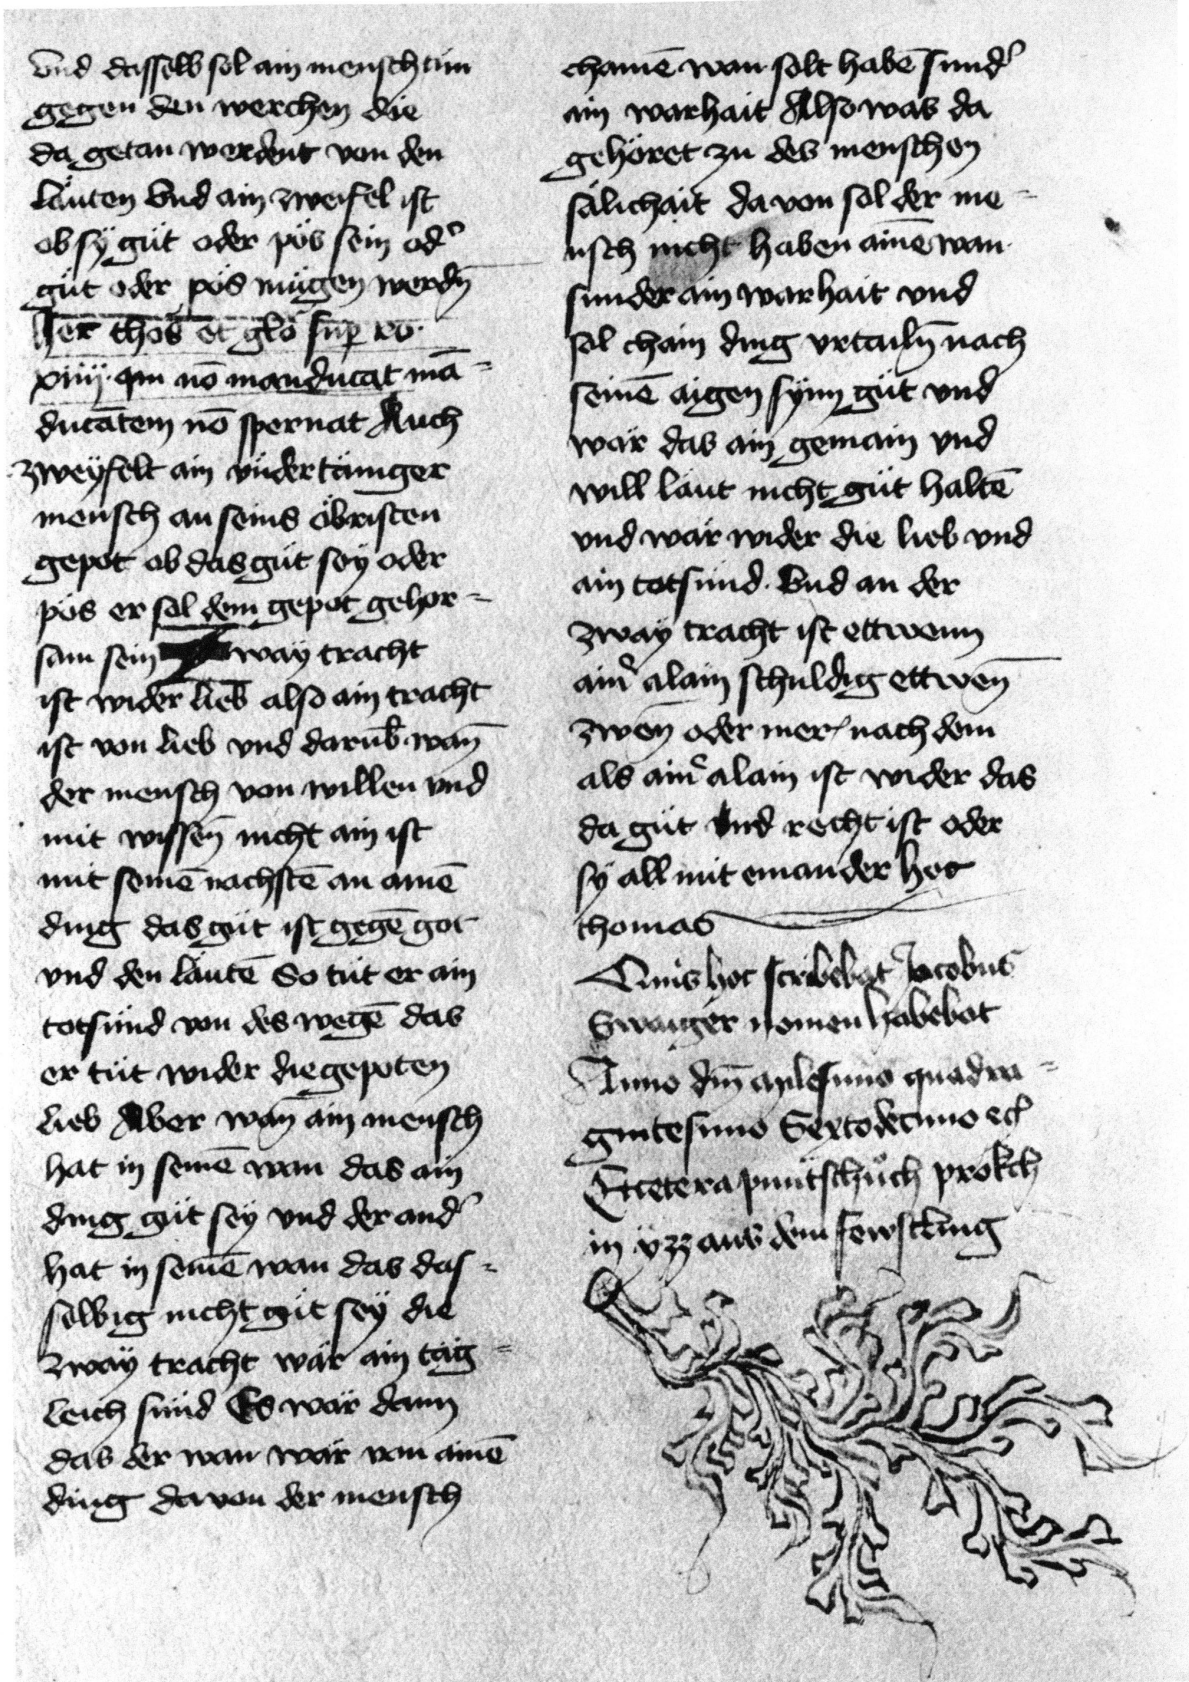 Vnd dasselb sol ain mensch tün
gegen den werchen die
da getan werdent von den
läuten Vnd ain zweifel ist
ob sÿ güt oder pös sein od̾
güt oder pös mügen werdn̄
her thos et glo sup̱ ro·
xiiij· qm nō manducat mā=
ducātem nō spernat Auch
zweÿfelt ain vndertäniger
mensch an seins öbristen
gepot ob das güt seÿ oder
pös er sol dem gepot gehor=
sam sein Zwaÿ tracht
ist wider lieb also ain tracht
ist von lieb vnd darub̄ wan̄
der mensch von willen vnd
mit wissen̄ nicht ain ist
mit seinē nachstē an ainē
ding das güt ist gegē got
vnd den läutē So tüt er ain
totsünd von des wegē das
er tüt wider die gepoten
lieb Aber wan̄ ain mensch
hat in seinē wan das ain
ding güt seÿ vnd der and̾
hat in seinē wan das das=
selbig nicht güt seÿ die
zwaÿ tracht wär ain täg=
leich sünd Es wär dann
das der wan wär von ainē
ding davon der mensch
chainē wan solt habē sund̾
ain warhait Also was da
gehöret zu des menschen
sälichait da von sol der me=
nsch nicht haben ainē wan
sunder ain warhait vnd
sol chain ding vrtailn̄ nach
seinē aigen sÿnn güt vnd
wär das ain gemain vnd
will läut nicht güt haltē
vnd wär wider die lieb vnd
ain totsünd· Vnd an der
zwaÿ tracht ist ettwenn
ain̾ alain schuldig ettwen̄
zwen̄ oder mer nach dem
als ain̾ alain ist wider das
da güt vnd recht ist oder
sÿ all mit einander hec
thomas
Quis hoc scribebat Jacobus
Swaiger nomen habebat
Anno dm̄ milesimo quadra=
gintesimo Sextodecimo ec̾
Etcetera puntschůch prokch
in ÿzz aus dem fewstling